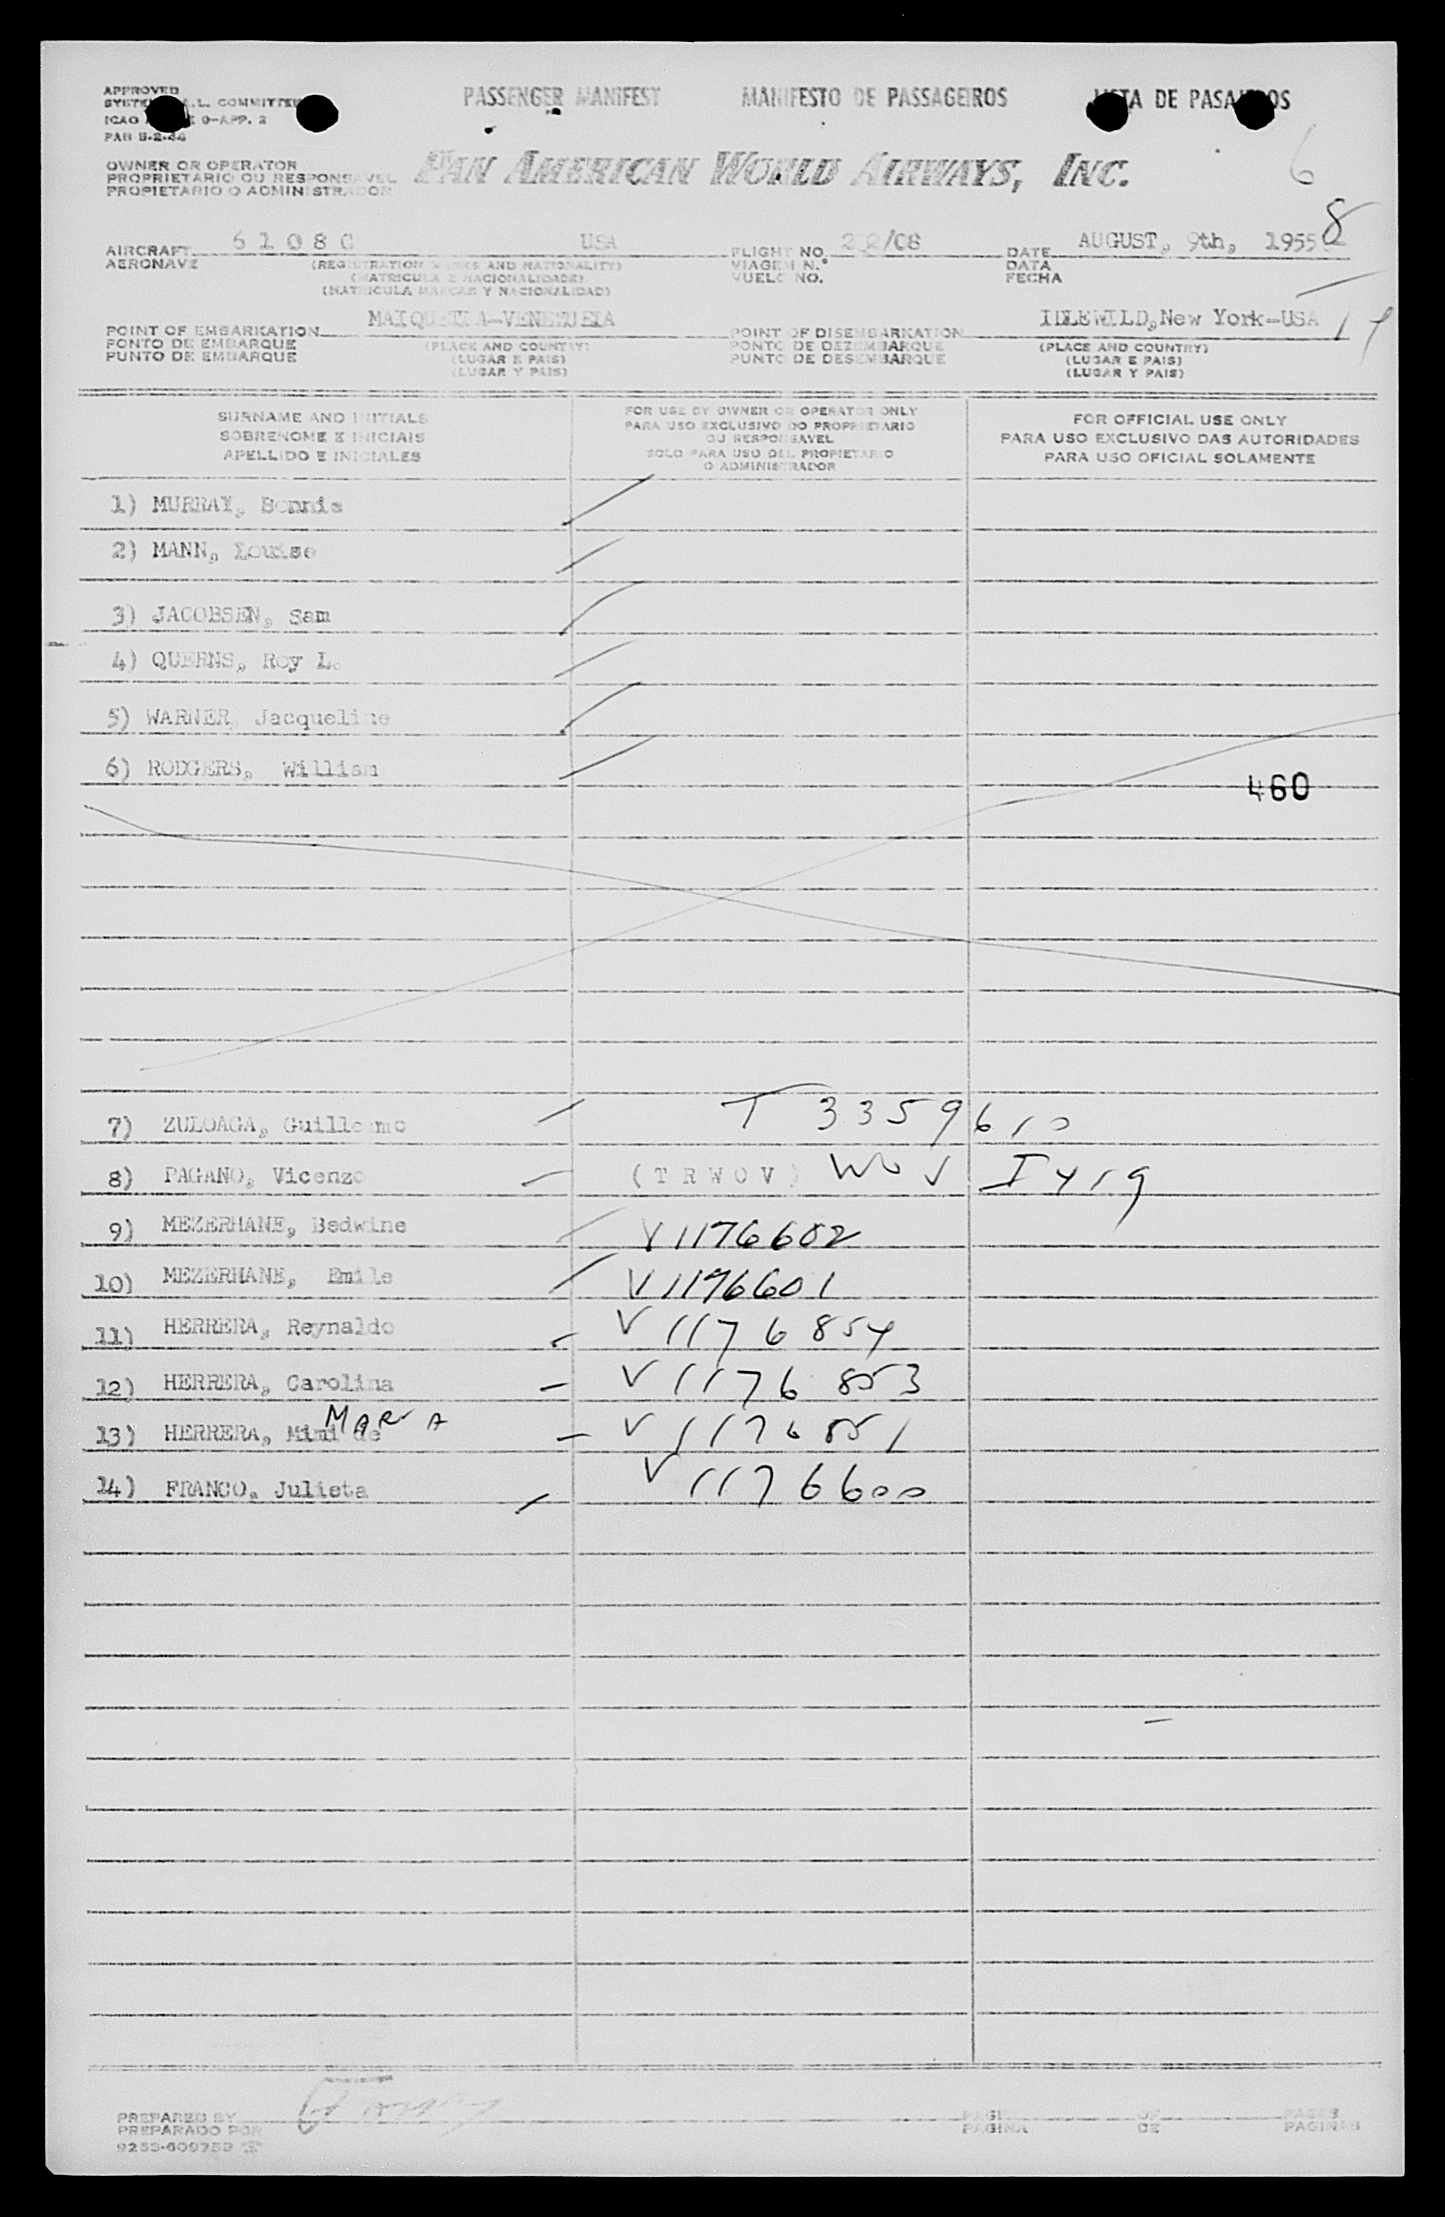 APPROVED PASSENGER MANIFEST MANIFESTO DE PASSAGEIROS LISTA DE PASAJEROS
A.L. COMMITTEE
ICAO 9-APP. 2
PAN
6
OWNER OR OPERATOR
PROPRIETARIO OU RESPONSAVEL
PROPIETARIO O ADMINISTRADOR
PAN AMERICAN WORLD AIRWAYS, INC.
8
AIRCRAFT 6 1 0 8 C USA FLIGHT NO. 202/08 DATE AUGUST, 9th, 1955
AERONAVE (REGISTRATION MARKS AND NATIONALITY) VIAGEM N.° DATA
(MATRICULA E NACIONALIDADE) VUELO NO. FECHA
(MATRICULA MARCAS Y NACIONALIDAD)
POINT OF EMBARKATION MAIQUETIA-VENEZUELA POINT OF DISEMBARKATION IDLEWILD, New York-USA
PONTO DE EMBARQUE (PLACE AND COUNTRY) PONTO DE DEZEMBARQUE (PLACE AND COUNTRY)
PUNTO DE EMBARQUE (LUGAR E PAIS) PUNTO DE DESEMBARQUE (LUGAR E PAIS)
(LUGAR Y PAIS) (LUGAR Y PAIS)
SURNAME AND INITIALS
SOBRENOME E INICIAIS
APELLIDO E INICIALES
FOR USE BY OWNER OR OPERATOR ONLY
PARA USO EXCLUSIVO DO PROPRIETARIO
OU RESPONSAVEL
SOLO PARA USO DEL PROPIETARIO
O ADMINISTRADOR
FOR OFFICIAL USE ONLY
PARA USO EXCLUSIVO DAS AUTORIDADES
PARA USO OFICIAL SOLAMENTE
1) MURRAY, Bonnie
2) MANN, Louise
3) JACOBSEN, Sam
4) QUERNS, Roy L.
5) WARNER, Jacqueline
6) RODGERS, William
460
7) ZULOAGA, Guillermo T 3359610
8) PAGANO, Vicenzo (T R W O V)
9) MEZERHANE, Bedwine V 1176602
10) MEZERHANE, Emile V 1176601
11) HERRERA, Reynaldo V 1176854
12) HERRERA, Carolina V 1176853
MARIA
13) HERRERA, Mimi de V 1176851
14) FRANCO, Julieta V 1176600
PREPARED BY PAGE OF PAGES
PREPARADO POR PAGINA DE PAGINAS